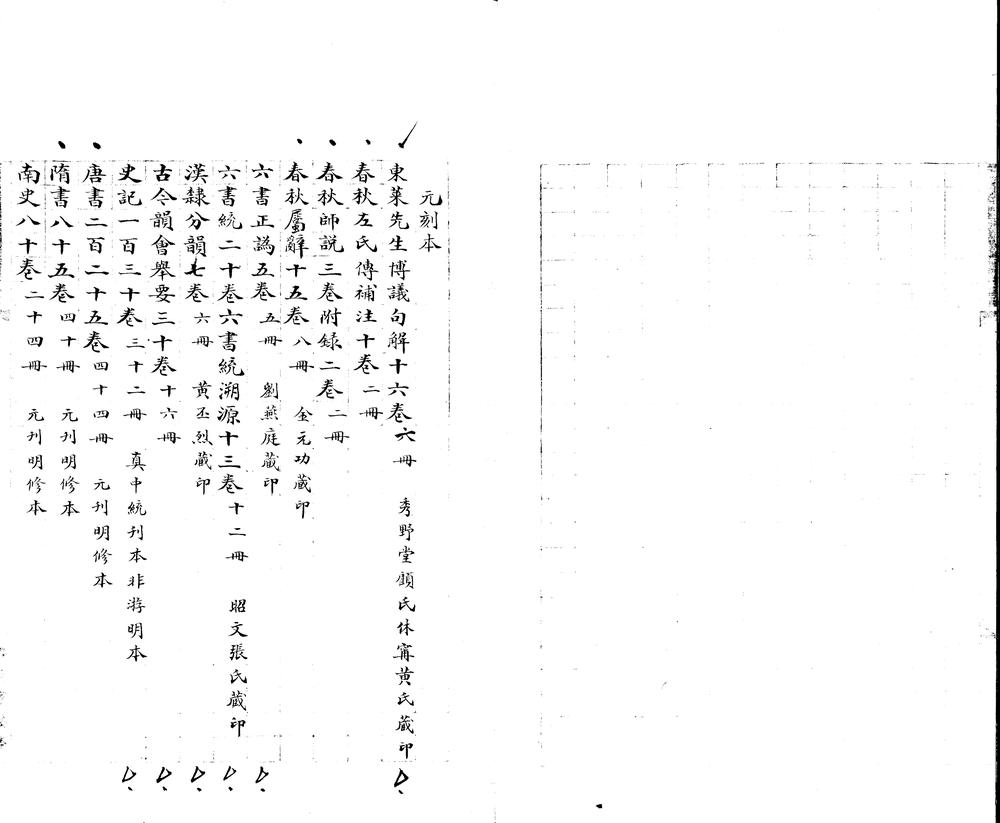 元刻本
東萊先生博議句解十六卷六冊 秀野堂顧氏休甯黃氏藏印
春秋左氏傳補注十卷二冊
春秋師說三卷附録二卷二冊
春秋屬辭十五卷八冊 金元功藏印
六書正譌五卷五冊 劉燕庭藏印
六書統二十卷六書統溯源十三卷十二冊 昭文張氏藏印
漢隸分韻七卷六冊 黃丕烈藏印
古今韻會舉要三十卷十六冊
史記一百三十卷三十二冊 真中統刊本非游明本
唐書二百二十五卷四十四冊 元刊明修本
隋書八十五卷四十冊 元刊明修本
南史八十卷二十四冊 元刊明修本